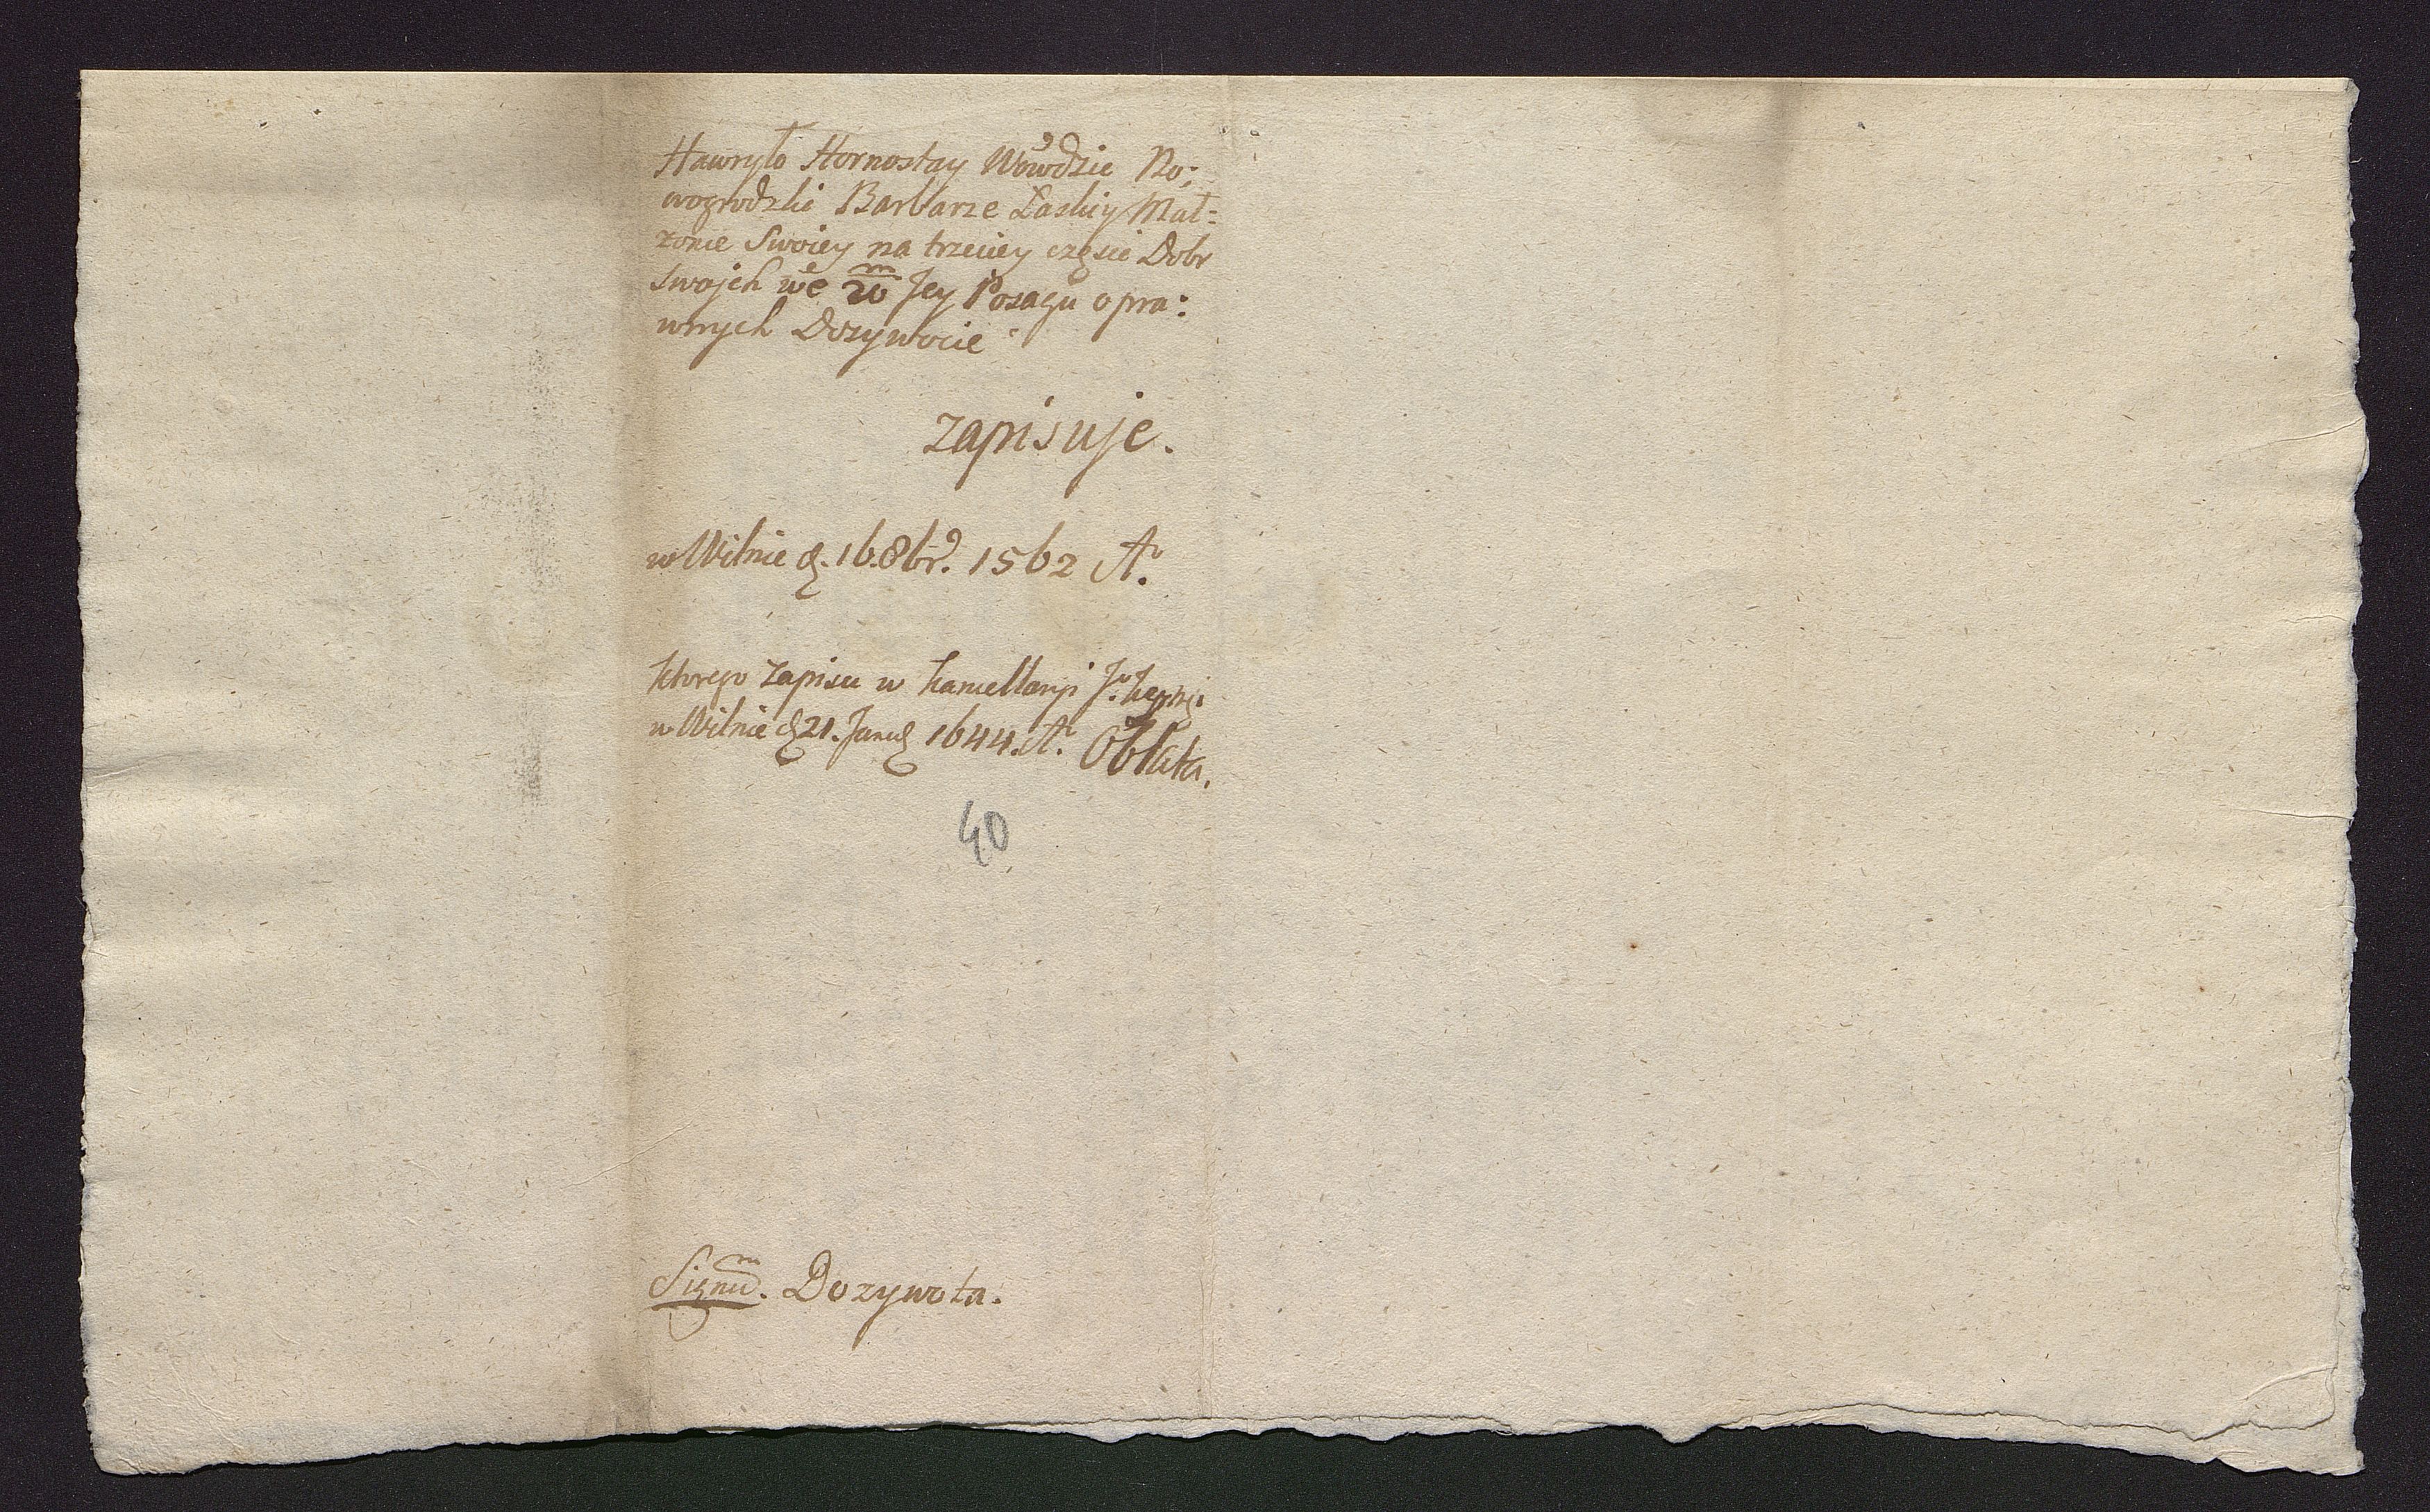 Hawryło Hornostay Wöwdzie No:
wogrodzki Barbarze Łaskiy Mał=
zonie Swoiey na trzeciey częsie Dobr
swojch we 20 m Jey Posagu opra:
wnych Dozywocie
zapisuje.
w Wilnie d. 16. 8br. 1562 Ao.
ktorego zapisu w kancellarji
w Wilnie d 21. Janu 1644. Ao. Oblata.
40
Signum. Dozywota.